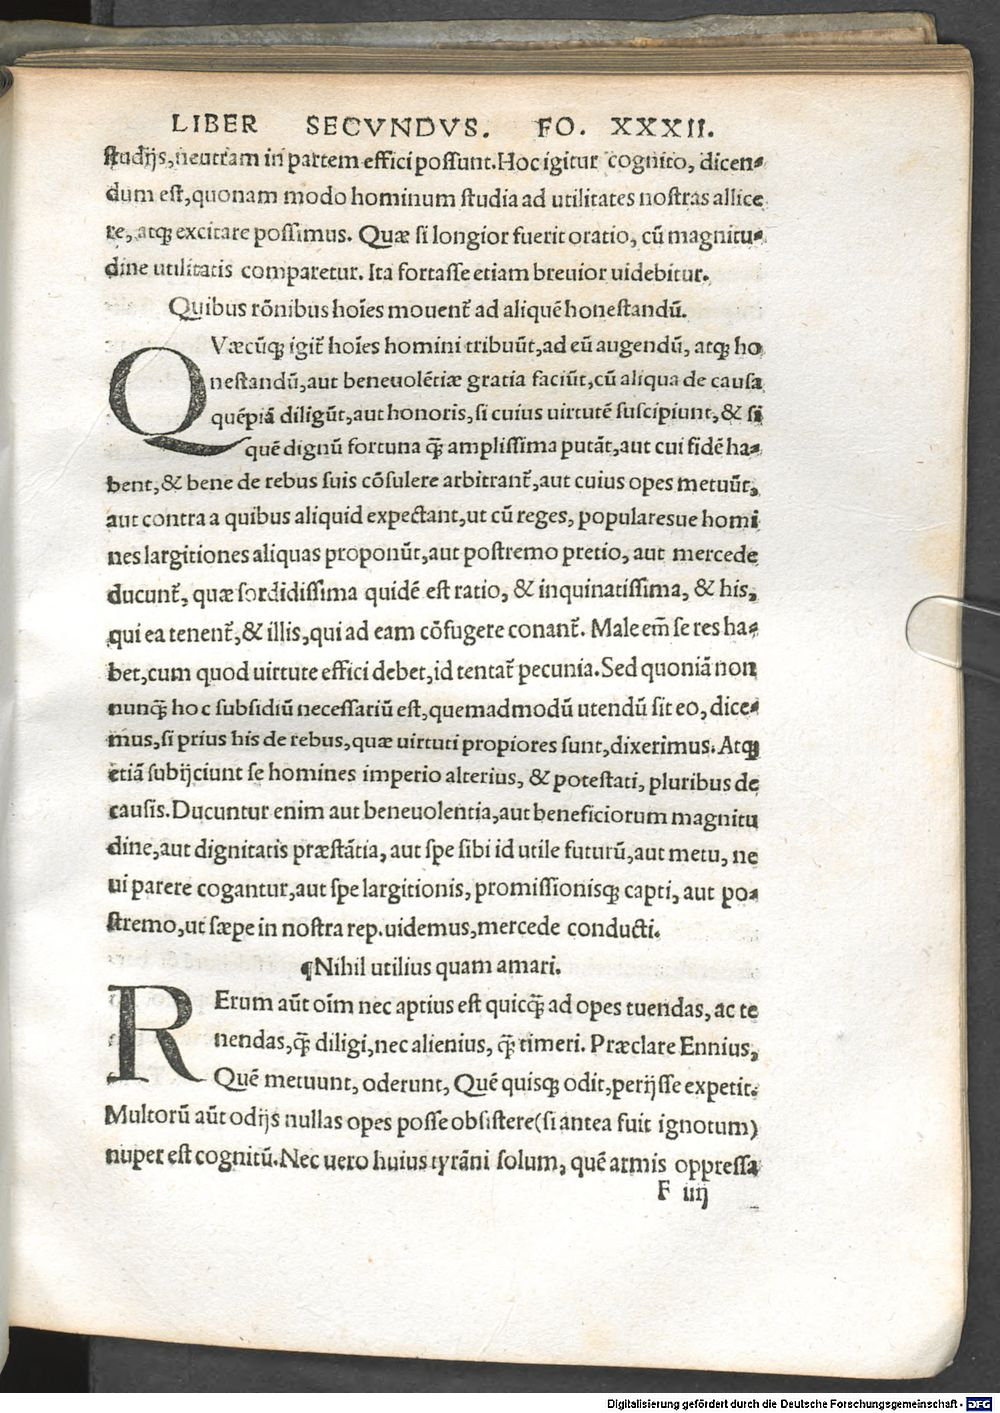 LIBER SECVNDVS. FO. XXXII.
studijs, neutram in partem effici possunt. Hoc igitur cognito, dicen-
dum est, quonam modo hominum studia ad utilitates nostras allice
re, atqꝫ excitare possimus. Quæ si longior fuerit oratio, cũ magnitu-
dine utilitatis comparetur. Ita fortasse etiam breuior uidebitur.
Quibus rõnibus hoĩes mouent᷑ ad aliquẽ honestandũ.
QVæcũqꝫ igit᷑ hoĩes homini tribuũt, ad eũ augendũ, atqꝫ ho
nestandũ, aut beneuolẽtiæ gratia faciũt, cũ aliqua de causa
quẽpiã diligũt, aut honoris, si cuius uirtutẽ suscipiunt, & si
quẽ dignũ fortuna q̃ꝫ amplissima putãt, aut cui fidẽ ha-
bent, & bene de rebus suis cõsulere arbitrant᷑, aut cuius opes metuũt,
aut contra a quibus aliquid expectant, ut cũ reges, popularesue homi
nes largitiones aliquas proponũt, aut postremo pretio, aut mercede
ducunt᷑, quæ sordidissima quidẽ est ratio, & inquinatissima, & his,
qui ea tenent᷑, & illis, qui ad eam cõfugere conant᷑. Male em̃ se res ha-
bet, cum quod uirtute effici debet, id tentat᷑ pecunia. Sed quoniã non
nunq̃ꝫ hoc subsidiũ necessariũ est, quemadmodũ utendũ sit eo, dice-
mus, si prius his de rebus, quæ uirtuti propiores sunt, dixerimus. Atqꝫ
etiã subijciunt se homines imperio alterius, & potestati, pluribus de
causis. Ducuntur enim aut beneuolentia, aut beneficiorum magnitu
dine, aut dignitatis præstãtia, aut spe sibi id utile futurũ, aut metu, ne
ui parere cogantur, aut spe largitionis, promissionisqꝫ capti, aut po-
stremo, ut sæpe in nostra rep. uidemus, mercede conducti.
¶Nihil utilius quam amari.
RErum aũt oĩm nec aptius est quicq̃ꝫ ad opes tuendas, ac te
nendas, q̃ꝫ diligi, nec alienius, q̃ꝫ timeri. Præclare Ennius,
Quẽ metuunt, oderunt, Quẽ quisqꝫ odit, perijsse expetit.
Multorũ aũt odijs nullas opes posse obsistere (si antea fuit ignotum)
nuper est cognitũ. Nec uero huius tyrãni solum, quẽ armis oppressa
F iiij
Digitalisierung gefördert durch die Deutsche Forschungsgemeinschaft - DFG